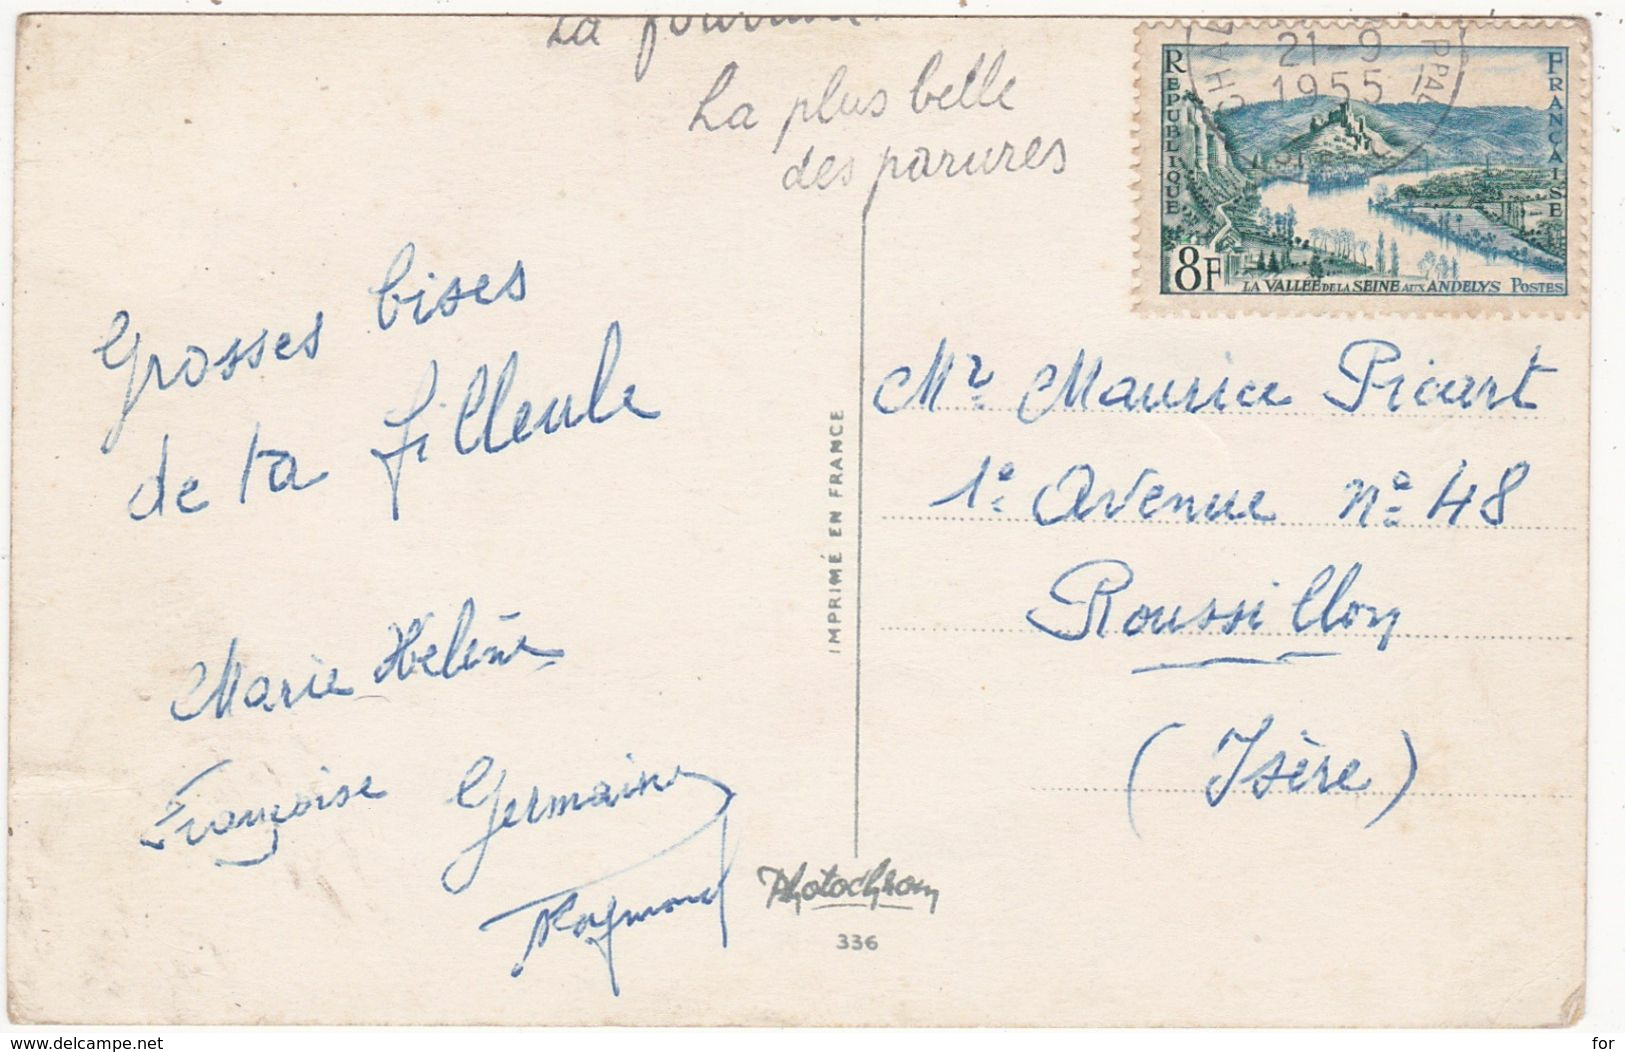 La
La plus belle
des parures
Grosses bises
de ta filleule
Marie Helène
Françoise Germaine
Raymond
IMPRIMÉ EN FRANCE
Photochrom
336
RÉPUBLIQUE
FRANÇAISE
21-9
1955
PPAL
8F
LA VALLÉE DE LA SEINE AUX ANDELYS POSTES
Mr Maurice Picart
1e Avenue No 48
Roussillon
(Isère)
www.delcampe.net
for